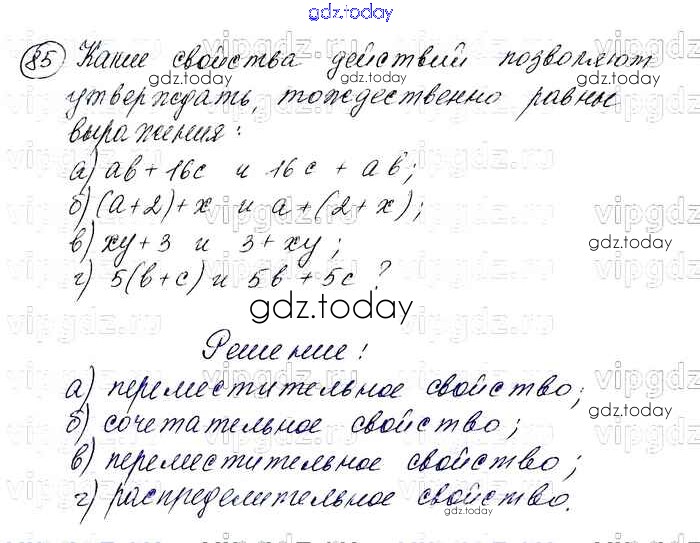 gdz.today
85 Какие свойства действий позволяют
gdz.today
утверждать, тождественно равны
выражения:
а) ab + 16c и 16c + ab;
б) (a+2)+x и a+(2+x);
в) xy+3 и 3+xy;
gdz.today
г) 5(b+c) и 5b+5c?
gdz.today
Решение:
а) переместительное свойство;
gdz.today
б) сочетательное свойство;
в) переместительное свойство;
г) распределительное свойство.
gdz.today